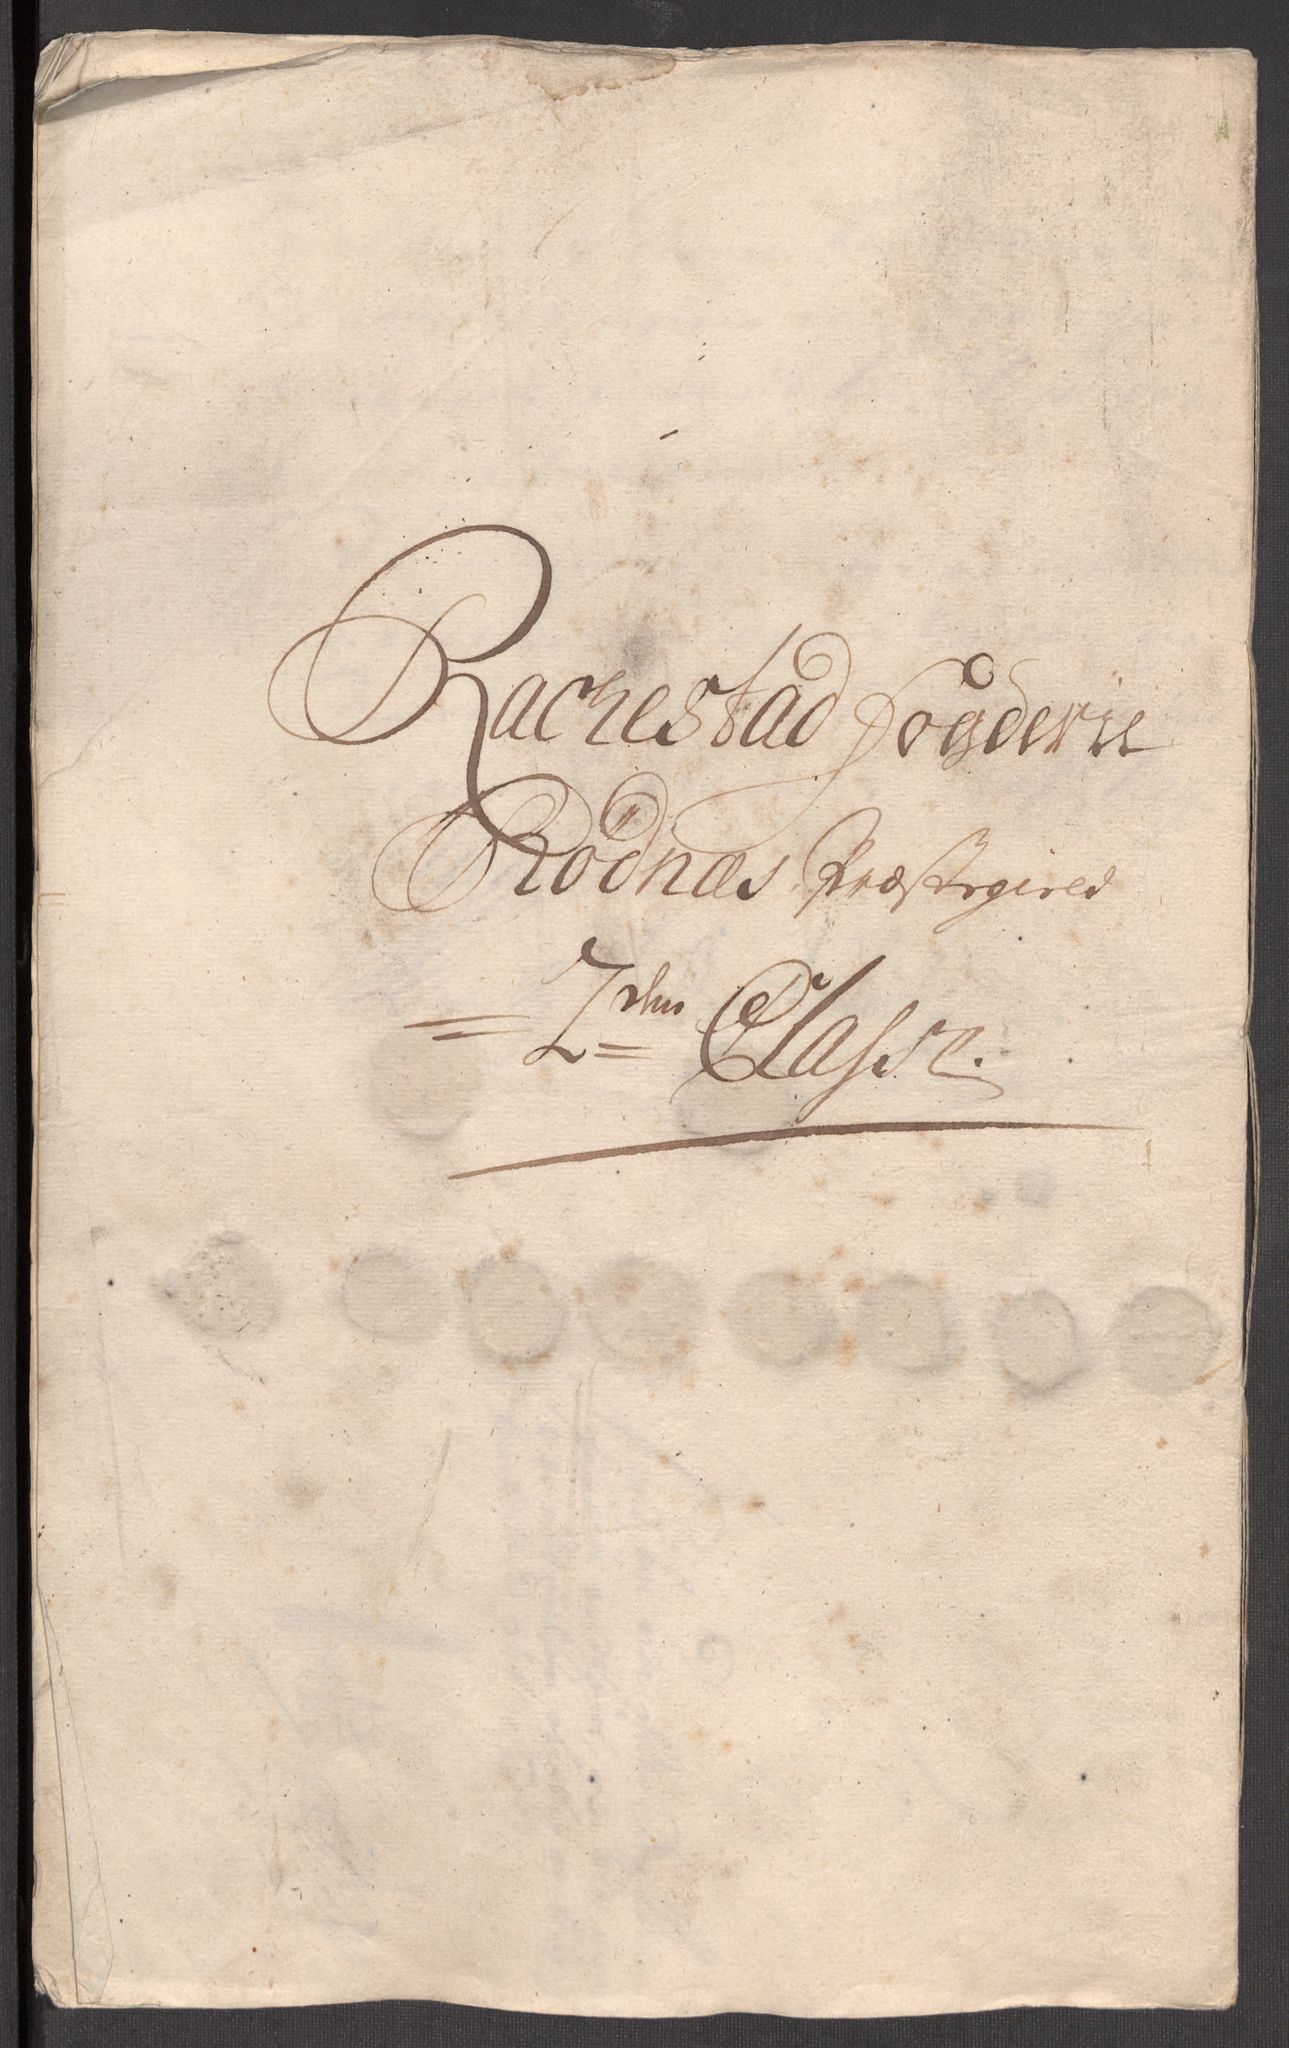 Rackestad Fogderie
Rödnæs Præstegield
2den Classe.